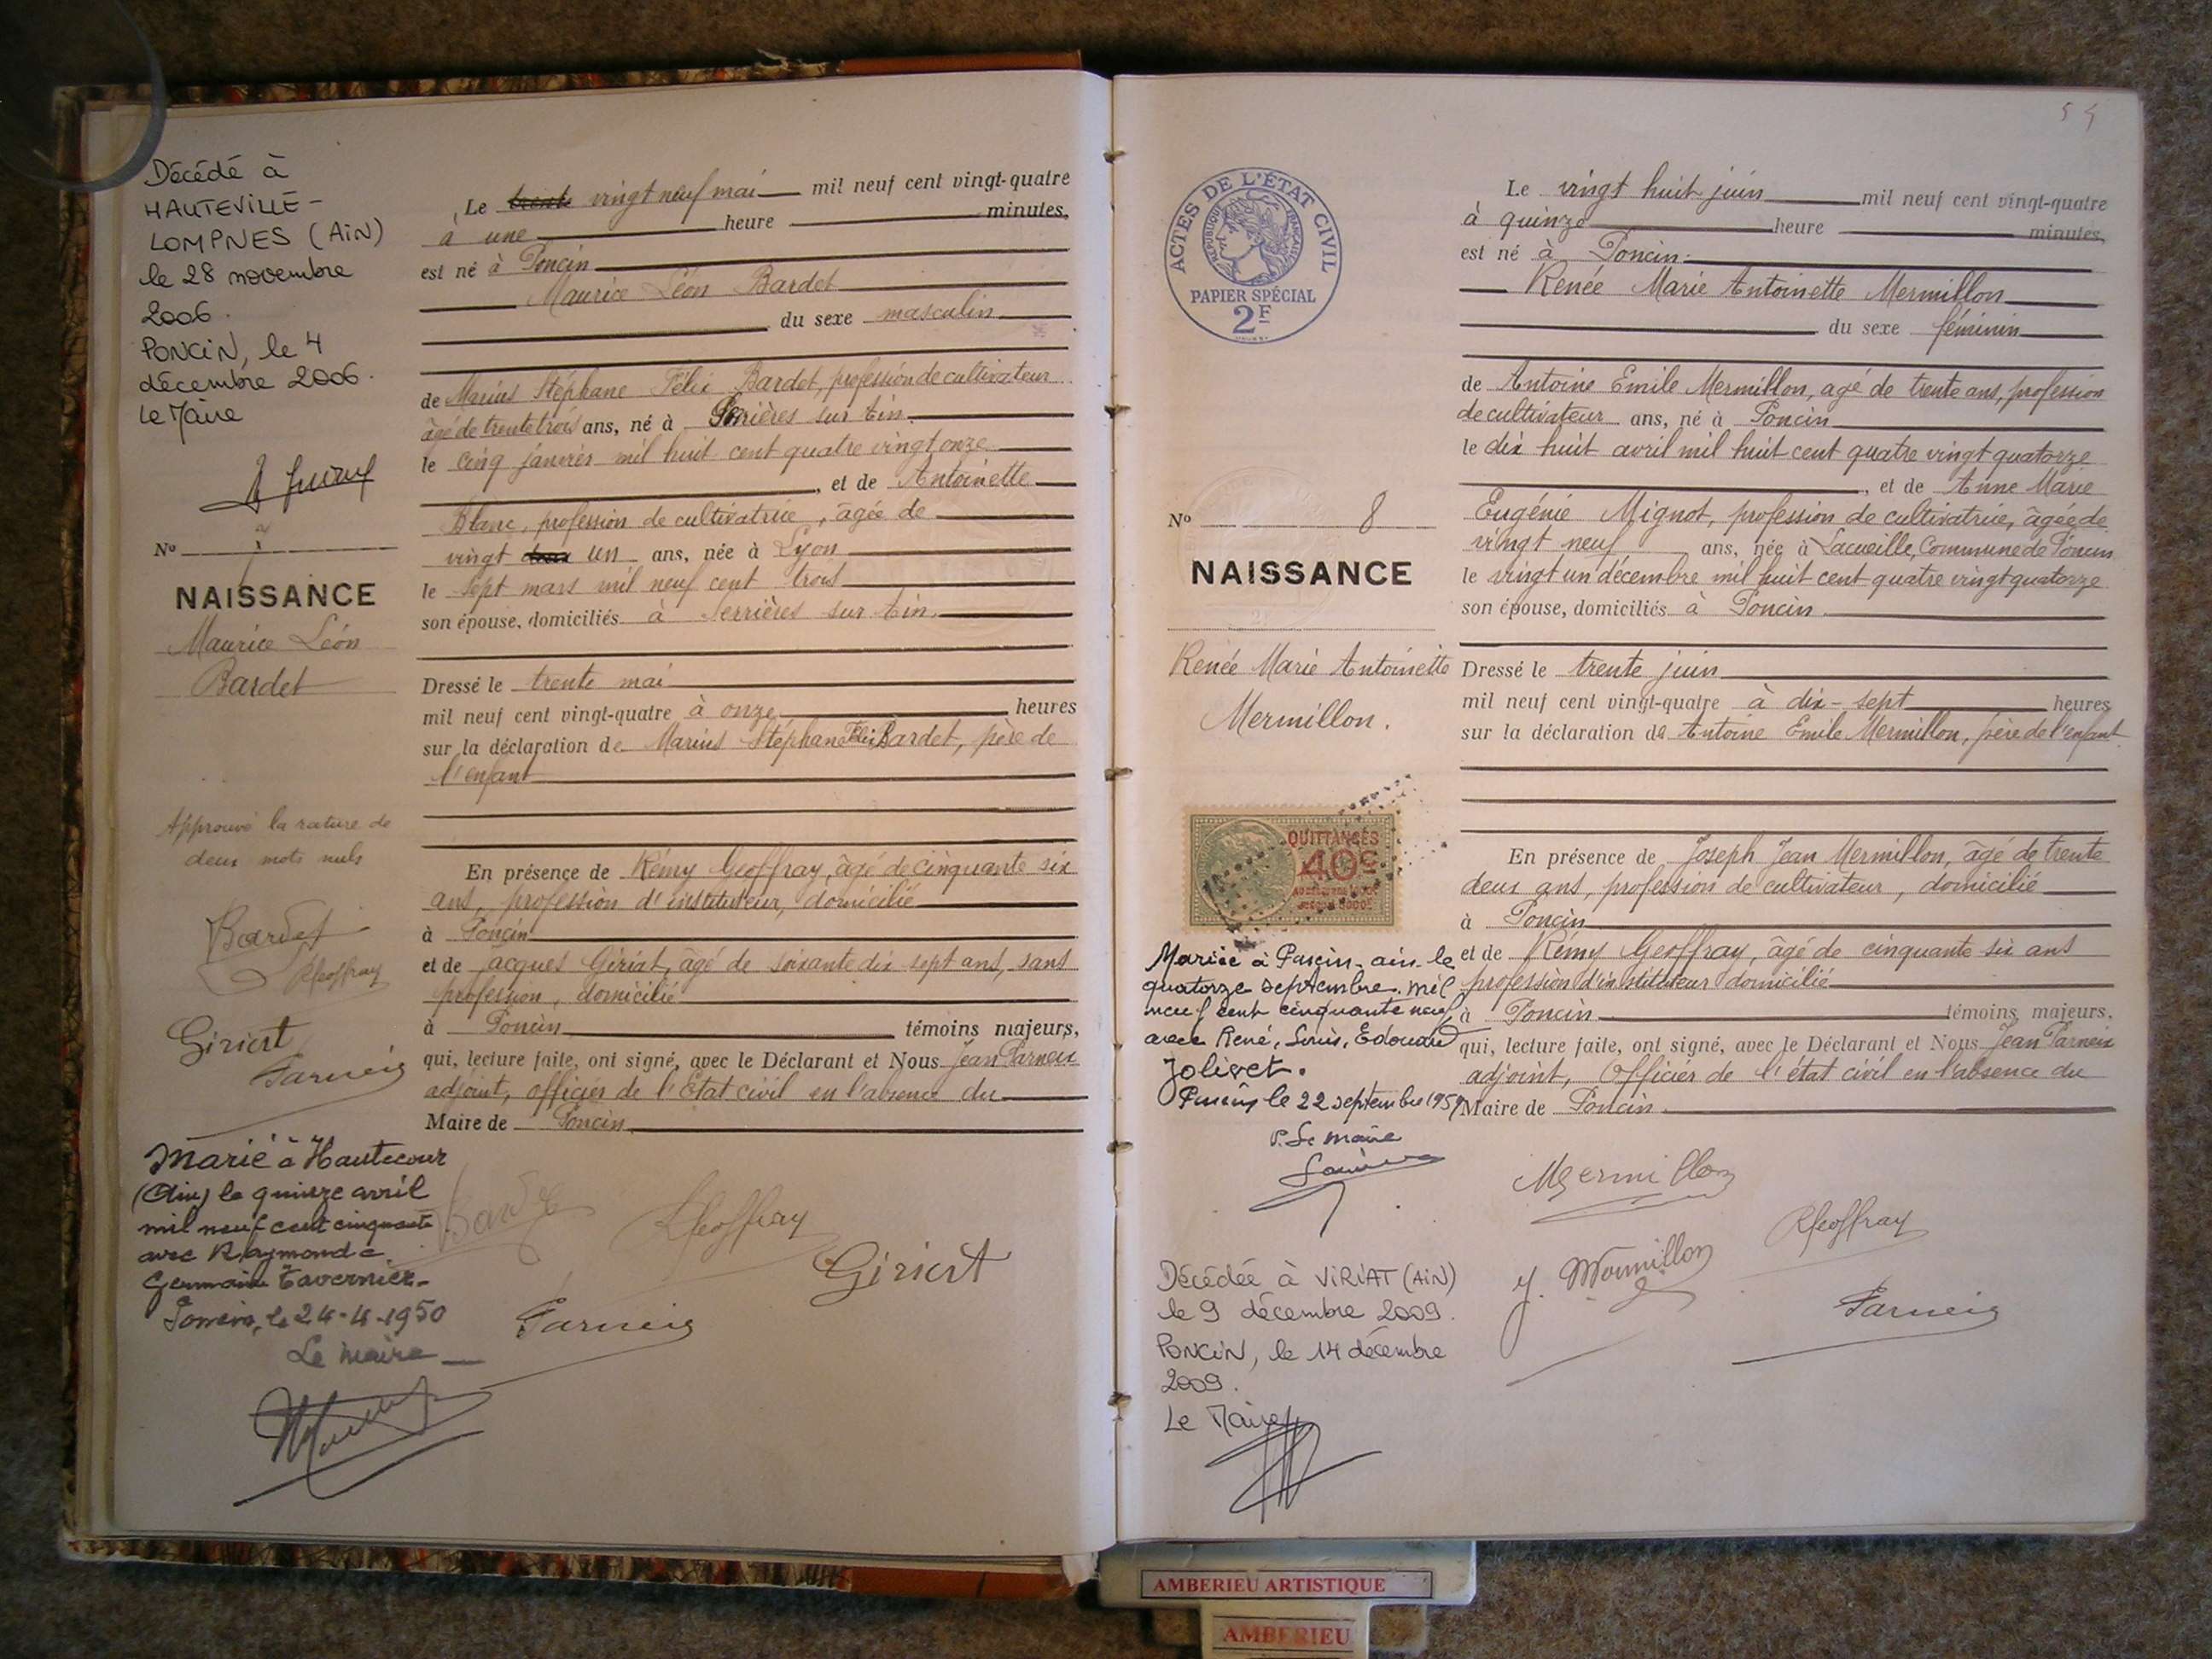 Décédé à
HAUTEVILLE-
LOMPNES (AIN)
le 28 novembre
2006.
PONCIN, le 4
décembre 2006.
Le Maire
No 7
NAISSANCE
Maurice Léon
Bardet
Approuvé la rature de
deux mots nuls
Bardet
RGeoffray
Giriat
Parneix
Marié à Hautecour
(Ain) le quinze avril
mil neuf cent cinquante
avec Raymonde
Germaine Tavernier.
Poncin, le 24-4-1950
Le maire
Le trente vingt neuf mai mil neuf cent vingt-quatre
à une heure minutes,
est né à Poncin
Maurice Léon Bardet
du sexe masculin
de Marius Stéphane Félix Bardet, profession de cultivateur
âgé de trente trois ans, né à Serrières sur Ain
le cinq janvier mil huit cent quatre vingt onze
, et de Antoinette
Blanc, profession de cultivatrice, âgée de
vingt deux un ans, née à Lyon
le sept mars mil neuf cent trois
son épouse, domiciliés à Serrières sur Ain.
Dressé le trente mai
mil neuf cent vingt-quatre à onze heures
sur la déclaration de Marius Stéphane Félix Bardet, père de
l'enfant
En présence de Rémy Geoffray, âgé de cinquante six
ans, profession d'instituteur, domicilié
à Poncin
et de Jacques Giriat, âgé de soixante dix sept ans, sans
profession, domicilié
à Poncin témoins majeurs,
qui, lecture faite, ont signé, avec le Déclarant et Nous Jean Parneix
adjoint, officier de l'Etat civil en l'absence du
Maire de Poncin
Bardet
RGeoffray
Giriat
Parneix
54
ACTES DE L'ÉTAT CIVIL
RÉPUBLIQUE FRANÇAISE
PAPIER SPÉCIAL
2F
No 8
NAISSANCE
Renée Marie Antoinette
Mermillon.
QUITTANCES
40c
Mariée à Poncin-ain-le
quatorze septembre mil
neuf cent cinquante neuf
avec René, Louis, Edouard
Jolivet.
Poncin le 22 septembre 1959
P. Le Maire
Décédée à VIRIAT (AIN)
le 9 décembre 2009.
PONCIN, le 14 décembre
2009.
Le Maire
Le vingt huit juin mil neuf cent vingt-quatre
à quinze heure minutes,
est né à Poncin
Renée Marie Antoinette Mermillon
du sexe féminin
de Antoine Emile Mermillon, agé de trente ans, profession
de cultivateur ans, né à Poncin
le dix huit avril mil huit cent quatre vingt quatorze
, et de Anne Marie
Eugénie Mignot, profession de cultivatrice, âgée de
vingt neuf ans, née à Lacueille, Commune de Poncin
le vingt un décembre mil huit cent quatre vingt quatorze
son épouse, domiciliés à Poncin
Dressé le trente juin
mil neuf cent vingt-quatre à dix-sept heures
sur la déclaration de Antoine Emile Mermillon, père de l'enfant
En présence de Joseph Jean Mermillon, âgé de trente
deux ans, profession de cultivateur, domicilié
à Poncin
et de Rémy Geoffray, âgé de cinquante six ans
profession d'instituteur domicilié
à Poncin témoins majeurs,
qui, lecture faite, ont signé, avec le Déclarant et Nous Jean Parneix
adjoint, Officier de l'état civil en l'absence du
Maire de Poncin.
Mermillon
RGeoffray
J. Mermillon
Parneix
AMBERIEU ARTISTIQUE
AMBERIEU